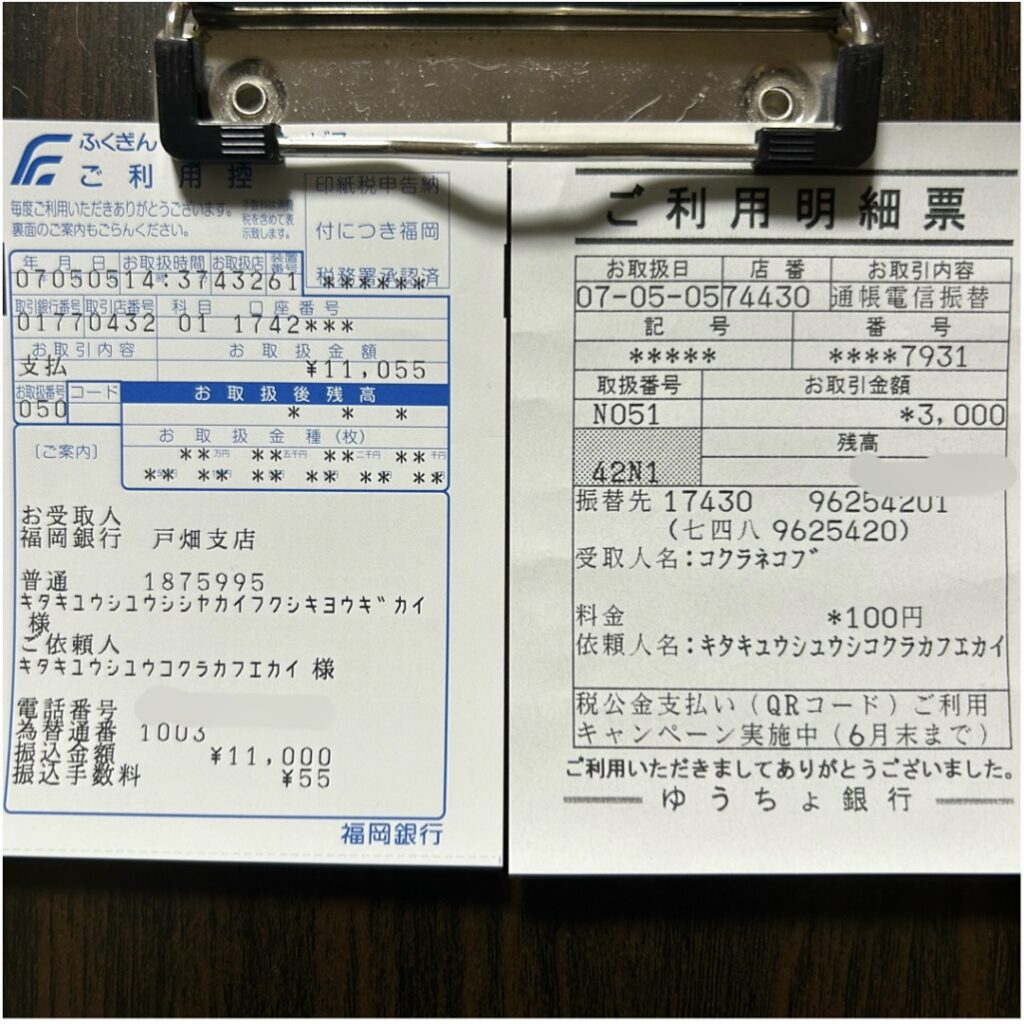 ふくぎん
ご利用控
毎度ご利用いただきありがとうございます。
裏面のご案内もごらんください。
手数料は消費
税を含めて表
示致します。
印紙税申告納
付につき福岡
税務署承認済
年月日 お取扱時間 お取扱店 装置番号
070505 14:37 43261 ******
取引銀行番号 取引店番号 科目 口座番号
0177 0432 01 1742***
お取引内容 お取扱金額
支払 ¥11,055
お取扱番号 コード お取扱後残高
050 * * *
お取扱金種(枚)
〔ご案内〕
**万円 **五千円 **二千円 **千円
** ** ** ** **
お受取人
福岡銀行 戸畑支店
普通 1875995
キタキユウシユウシシヤカイフクシキヨウギカイ
様
ご依頼人
キタキユウシユウコクラカフエカイ 様
電話番号
為替通番 1003
振込金額 ¥11,000
振込手数料 ¥55
福岡銀行
ご利用明細票
お取扱日 店番 お取引内容
07-05-05 74430 通帳電信振替
記号 番号
***** ****7931
取扱番号 お取引金額
N051 *3,000
残高
42N1
振替先 17430 96254201
(七四八 9625420)
受取人名:コクラネコブ
料金 *100円
依頼人名:キタキユウシユウシコクラカフエカイ
税公金支払い(QRコード)ご利用
キャンペーン実施中(6月末まで)
ご利用いただきましてありがとうございました。
ゆうちょ銀行